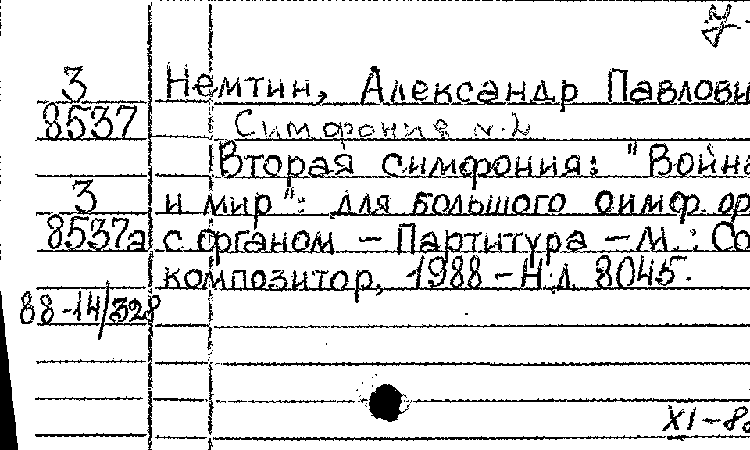 У-
3 Немтин, Александр Павлови
8537 Симфония N.2
Вторая симфония: "Война
3 и мир": для большого симф. ор
8537а с органом – Партитура – М.: Со
композитор, 1988 – Н.д. 8045.
88-14/328
XI-88